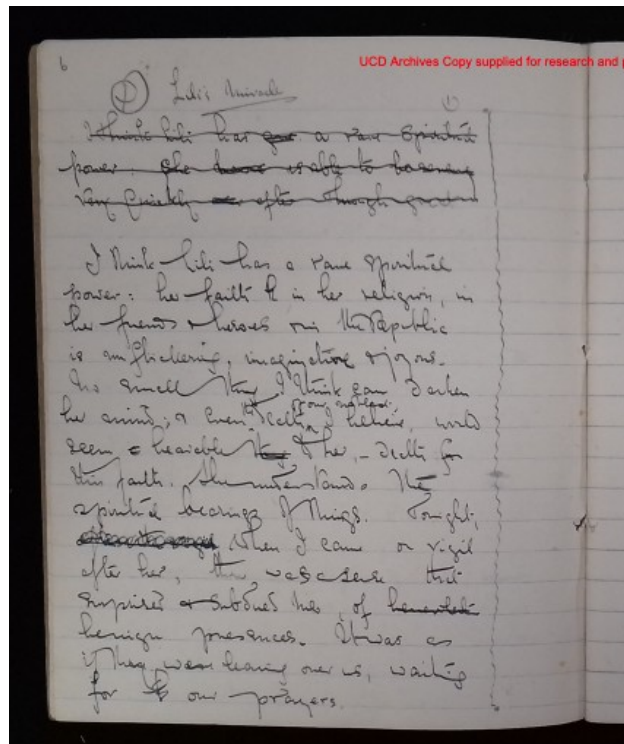 6
UCD Archives Copy supplied for research and
Lili's Miracle
I think Lili has a rare spiritual
power. She is able to
very quickly after though
I think Lili has a rare spiritual
power: her faith in her religion, in
her friends & heroes in the Republic
is unflickering, imaginative & joyous.
No small thing I think can darken
her mind; & even death, I believe, would
seem bearable to her, – death for
this faith. She understands the
spiritual bearings of things. Tonight,
when I came on vigil
after her, there was a sense that
surprised & subdued me, of
benign presences. It was as
if they were leaning over us, waiting
for our prayers.